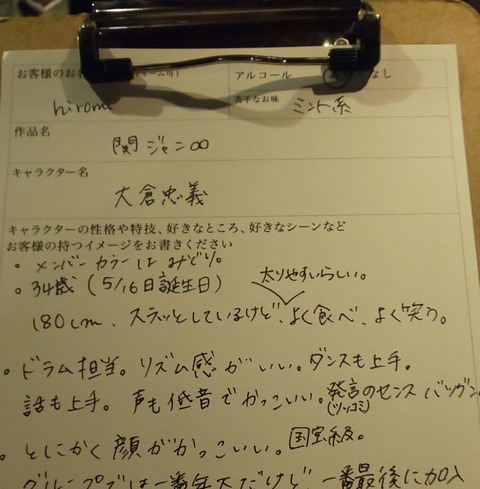 お客様のお
アルコール
なし
hiromi
苦手なお味
ミント系
作品名
関ジャニ∞
キャラクター名
大倉忠義
キャラクターの性格や特技、好きなところ、好きなシーンなど
お客様の持つイメージをお書きください
・メンバーカラーはみどり。
・34歳（5/16日誕生日）
太りやすいらしい。
180cm、スラッとしているけど、よく食べ、よく笑う。
・ドラム担当。リズム感がいい。ダンスも上手。
話も上手。声も低音でかっこいい。発言のセンスバツグン。
(ツッコミ)
・とにかく顔がかっこいい。国宝級。
グループでは一番年下だけど、一番最後に加入